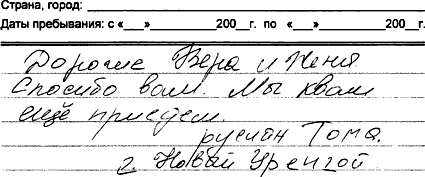 Страна, город:
Даты пребывания: с «___»__________200__г. по «___»__________200__г.
Дорогие Вера и Женя
Спосибо вам. Мы квам
ещё приедем.
Тома.
г. Новай Уренгой